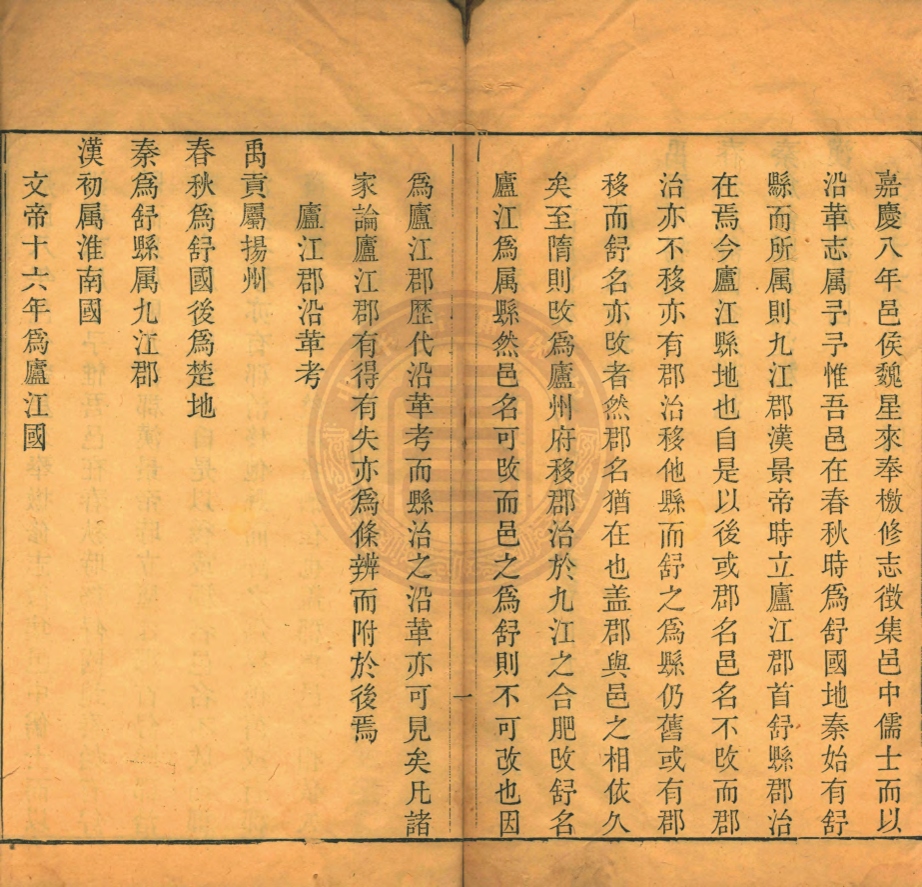 嘉慶八年邑侯魏星來奉檄修志徵集邑中儒士而以
沿革志属予予惟吾邑在春秋時為舒國地秦始有舒
縣而所属則九江郡漢景帝時立廬江郡首舒縣郡治
在焉今廬江縣地也自是以後或郡名邑名不攺而郡
治亦不移亦有郡治移他縣而舒之為縣仍舊或有郡
移而舒名亦攺者然郡名猶在也盖郡與邑之相依久
矣至隋則攺為廬州府移郡治於九江之合肥攺舒名
廬江為属縣然邑名可攺而邑之為舒則不可改也因
一
為廬江郡歴代沿革考而縣治之沿革亦可見矣凡諸
家論廬江郡有得有失亦為條辨而附於後焉
廬江郡沿革考
禹貢屬揚州
春秋為舒國後為楚地
秦為舒縣属九江郡
漢初属淮南國
文帝十六年為廬江國